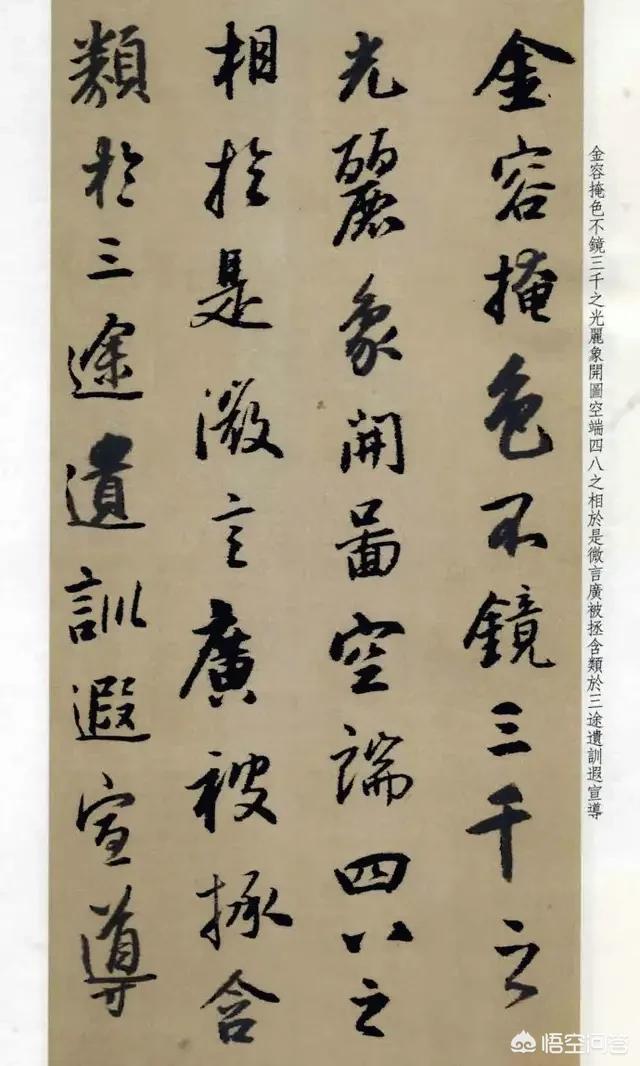 金容掩色不鏡三千之
光麗象開啚空端四八之
相於是微言廣被拯含
類於三途遺訓遐宣導
金容掩色不鏡三千之光麗象開圖空端四八之相於是微言廣被拯含類於三途遺訓遐宣導
悟空问答